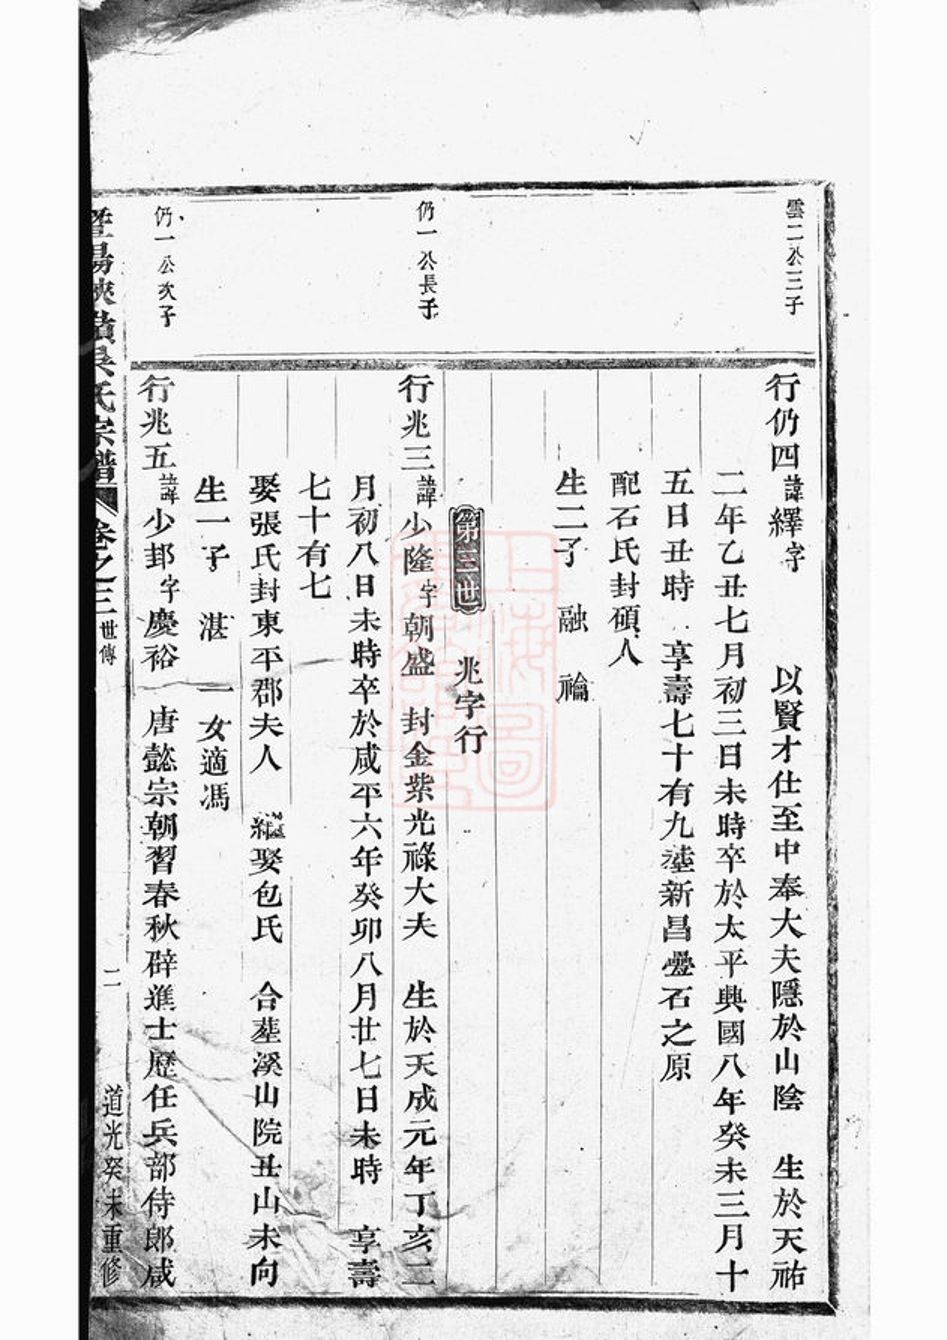 雲二公三子
行仍四諱繹字 以賢才仕至中奉大夫隱於山陰 生於天祐
二年乙丑七月初三日未時卒於太平興國八年癸未三月十
五日丑時 享壽七十有九塟新昌疊石之原
配石氏封碩人
生二子 融 褕
第三世 兆字行
仍一公長子
行兆三諱少隆字朝盛 封金紫光祿大夫 生於天成元年丁亥二
月初八日未時卒於咸平六年癸卯八月廿七日未時 享壽
七十有七
娶張氏封東平郡夫人 繼娶包氏 合塟溪山院丑山未向
生一子 湛 一女適馮
仍一公次子
行兆五諱少邽字慶裕 唐懿宗朝習春秋辟進士歷任兵部侍郎咸
暨陽 吳氏宗譜 卷之三 世傳 二 道光癸未重修